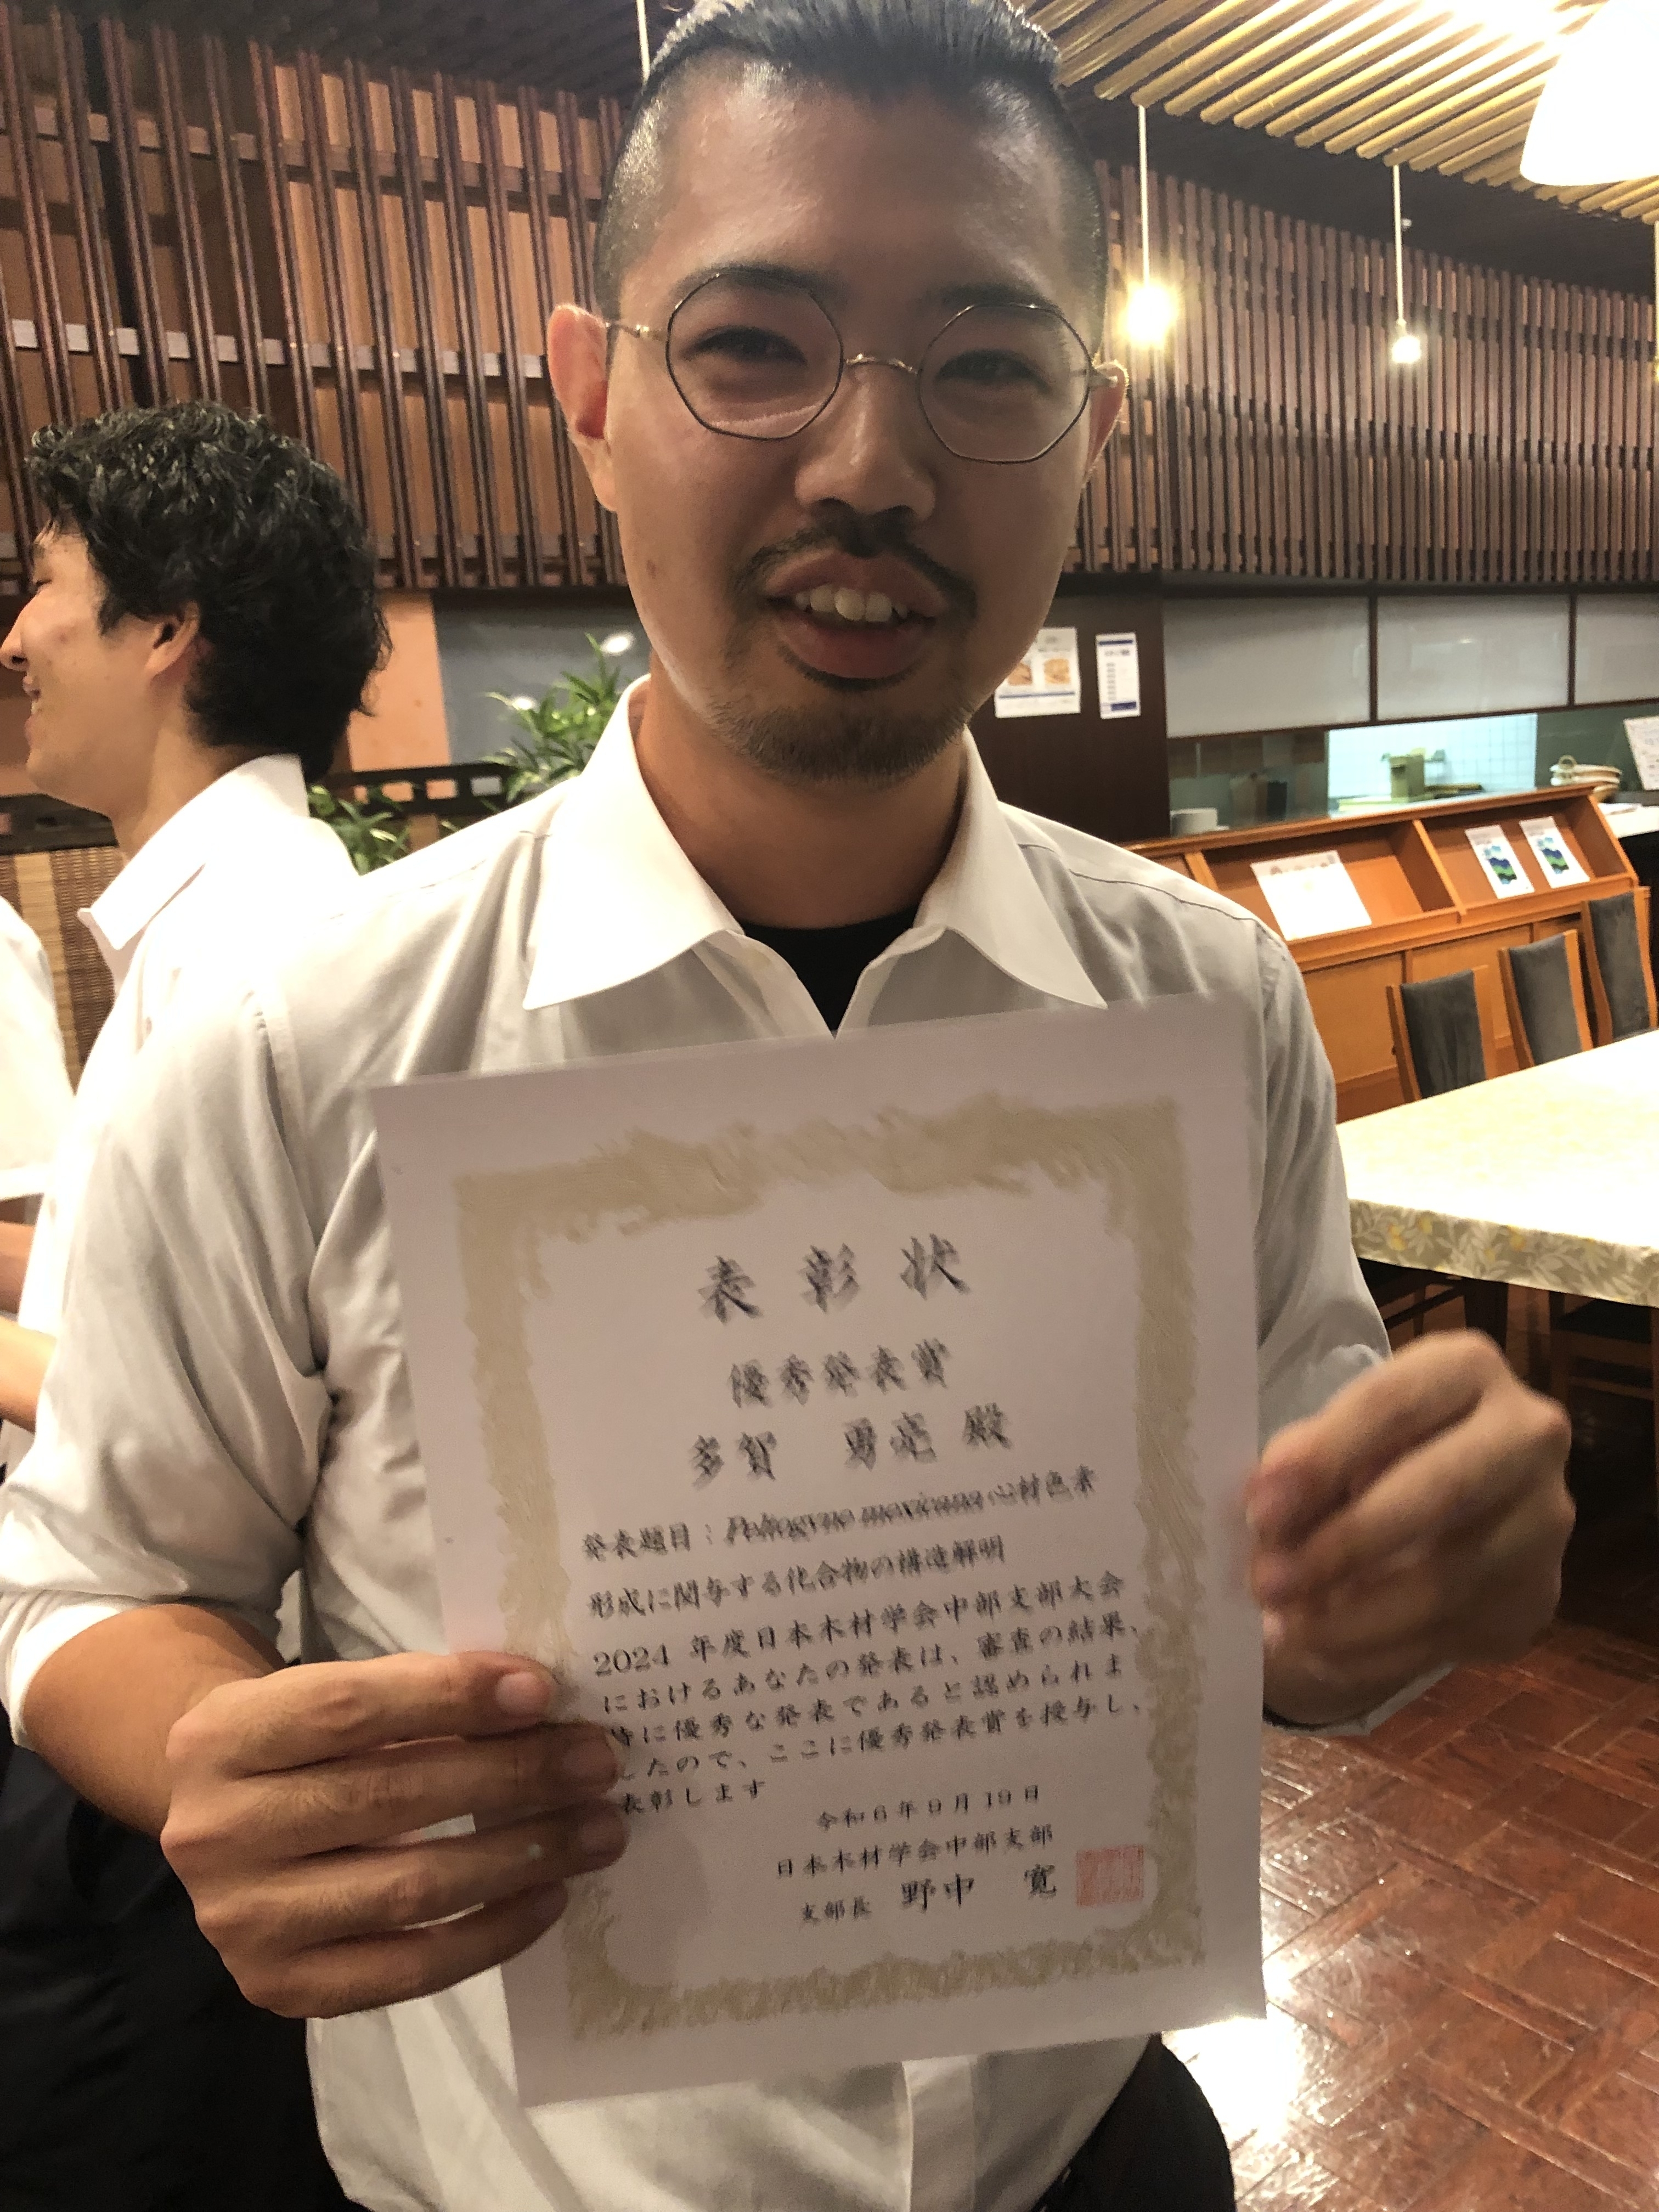 表彰状
優秀発表賞
多賀 勇壱 殿
発表題目：Peltogyne mexicana 心材色素
形成に関与する化合物の構造解明
2024 年度日本木材学会中部支部大会
におけるあなたの発表は、審査の結果、
特に優秀な発表であると認められま
したので、ここに優秀発表賞を授与し、
表彰します
令和6年9月19日
日本木材学会中部支部
支部長 野中 寛